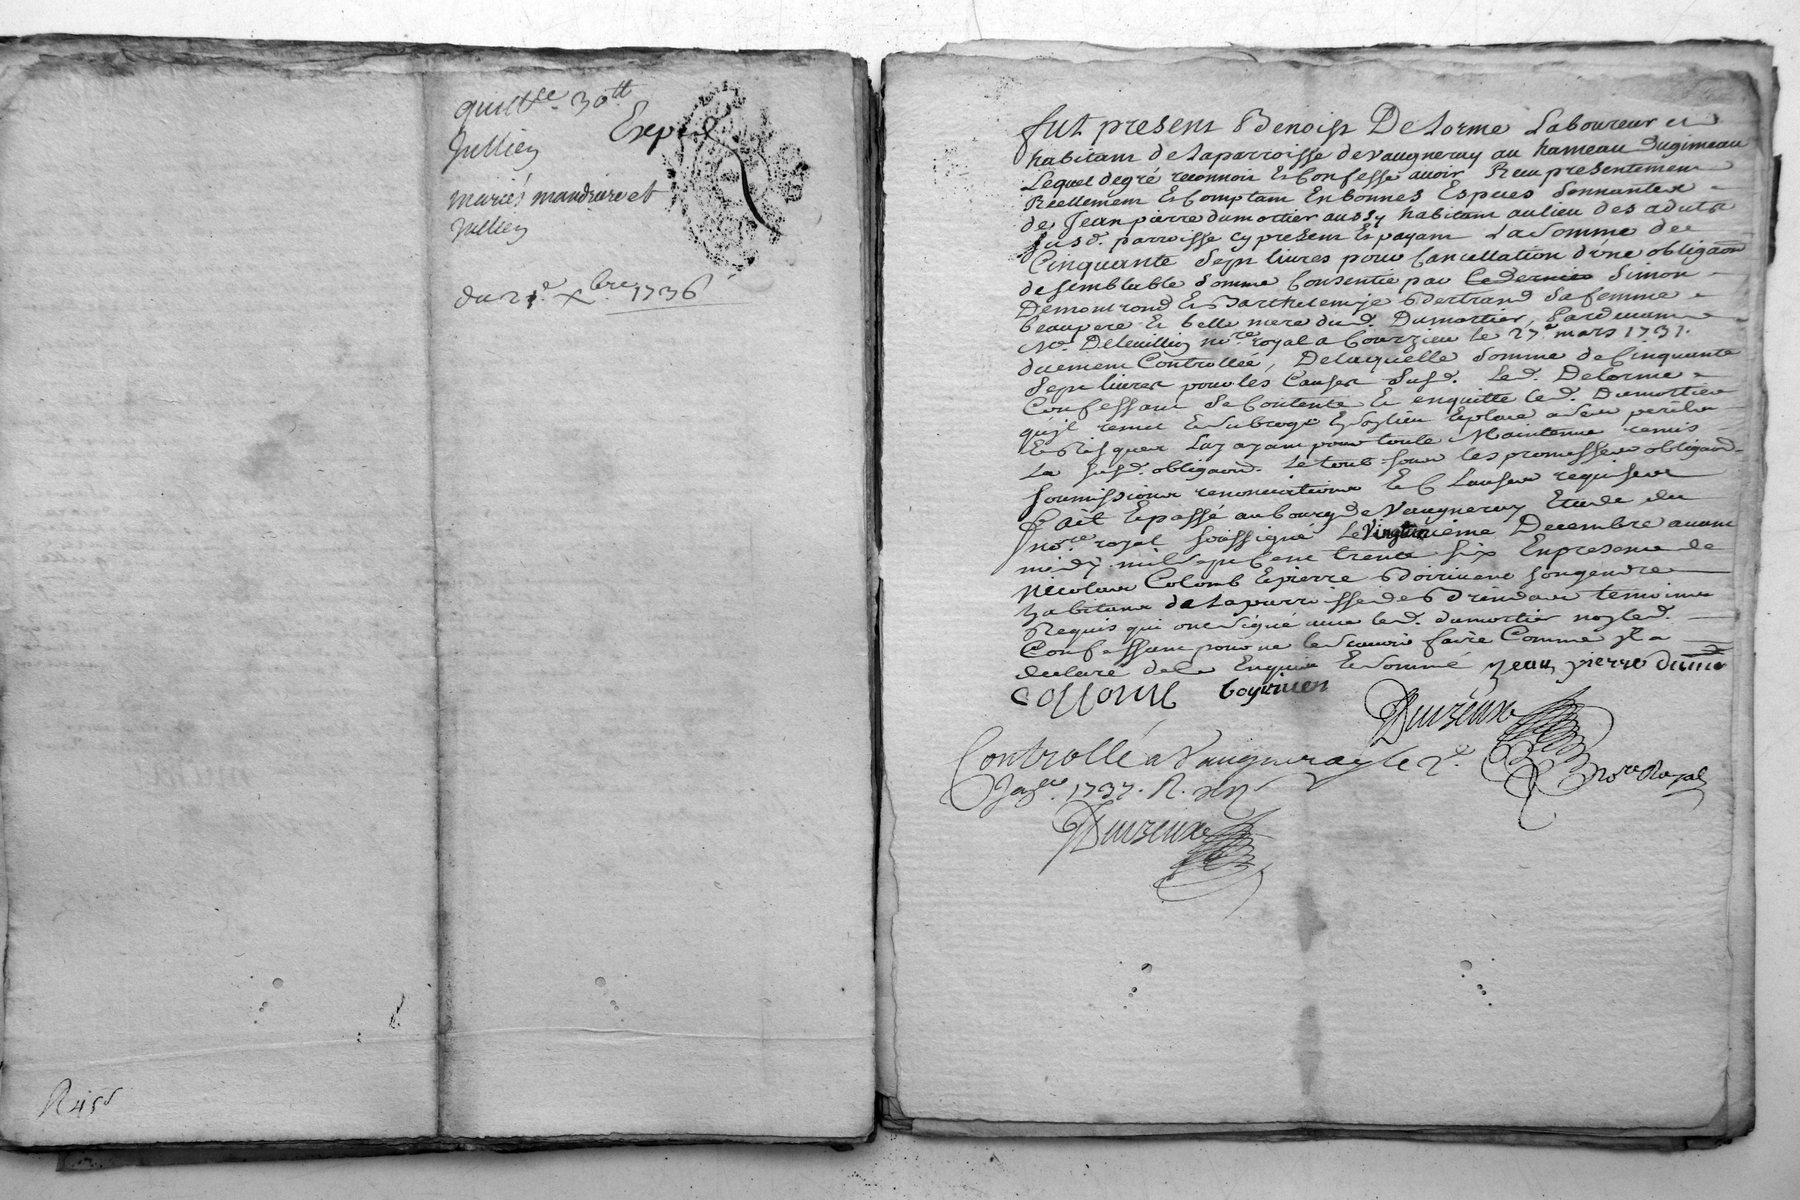 quitt.ce 30tt
Jullien
Exped
mariés mandrare et
Jullien
du 21e xbre 1736
R 45s
fut present Benoist Delorme Laboureur et
habitant de la parroisse de vaugneray au hameau dugimeau
Lequel de gré reconnoit et Confesse avoir Receu presentement
Réellement et Comptant En bonnes Especes Sonnantes
de Jean pierre dumortier aussy habitant au lieu des aduts
Susd. parroisse cy present et payant La Somme de
Cinquante Sept livres pour Cancellation d'une obligaon
de semblable Somme Consentie par Simon
Demontrond et Barthelemje Bertrand Sa femme
beaupere et belle mere dud. Dumortier, pardevant
Me. Deleuillion nore. royal a Courzieu le 27e mars 1731.
duement Controllée, De laquelle Somme de Cinquante
Sept livres pour les Causes Susd. Led. Delorme
Confessant Se Contente et en quitte led. Dumortier
qu'jl remet et Subroge En Son lieu et place a Ses perils
et Risques Luy ayant pour toute Maintenue remis
La Susd. obligaon. Le tout Sous les promesses obligaons.
Soumissions renonciations et Clauses requises
fait et passé au bourg de Vaugneray Etude du
nore. royal Soussigné Le Vingt unieme Decembre avant
midy mil Sept Cent trente Six En presence de
Nicolas Colomb et pierre Boiriven Son gendre
habitans de La parroisse de Brindas temoins
Requis qui ont Signé avec led. dumortier non led.
Confessant pour ne le Scavoir faire Comme jl a
declaré de ce Enquis et Sommé Jean pierre dumo
collomb boyriven
Controllé a Vaugneray le 2e.
Janer. 1737. R.
nore Royal